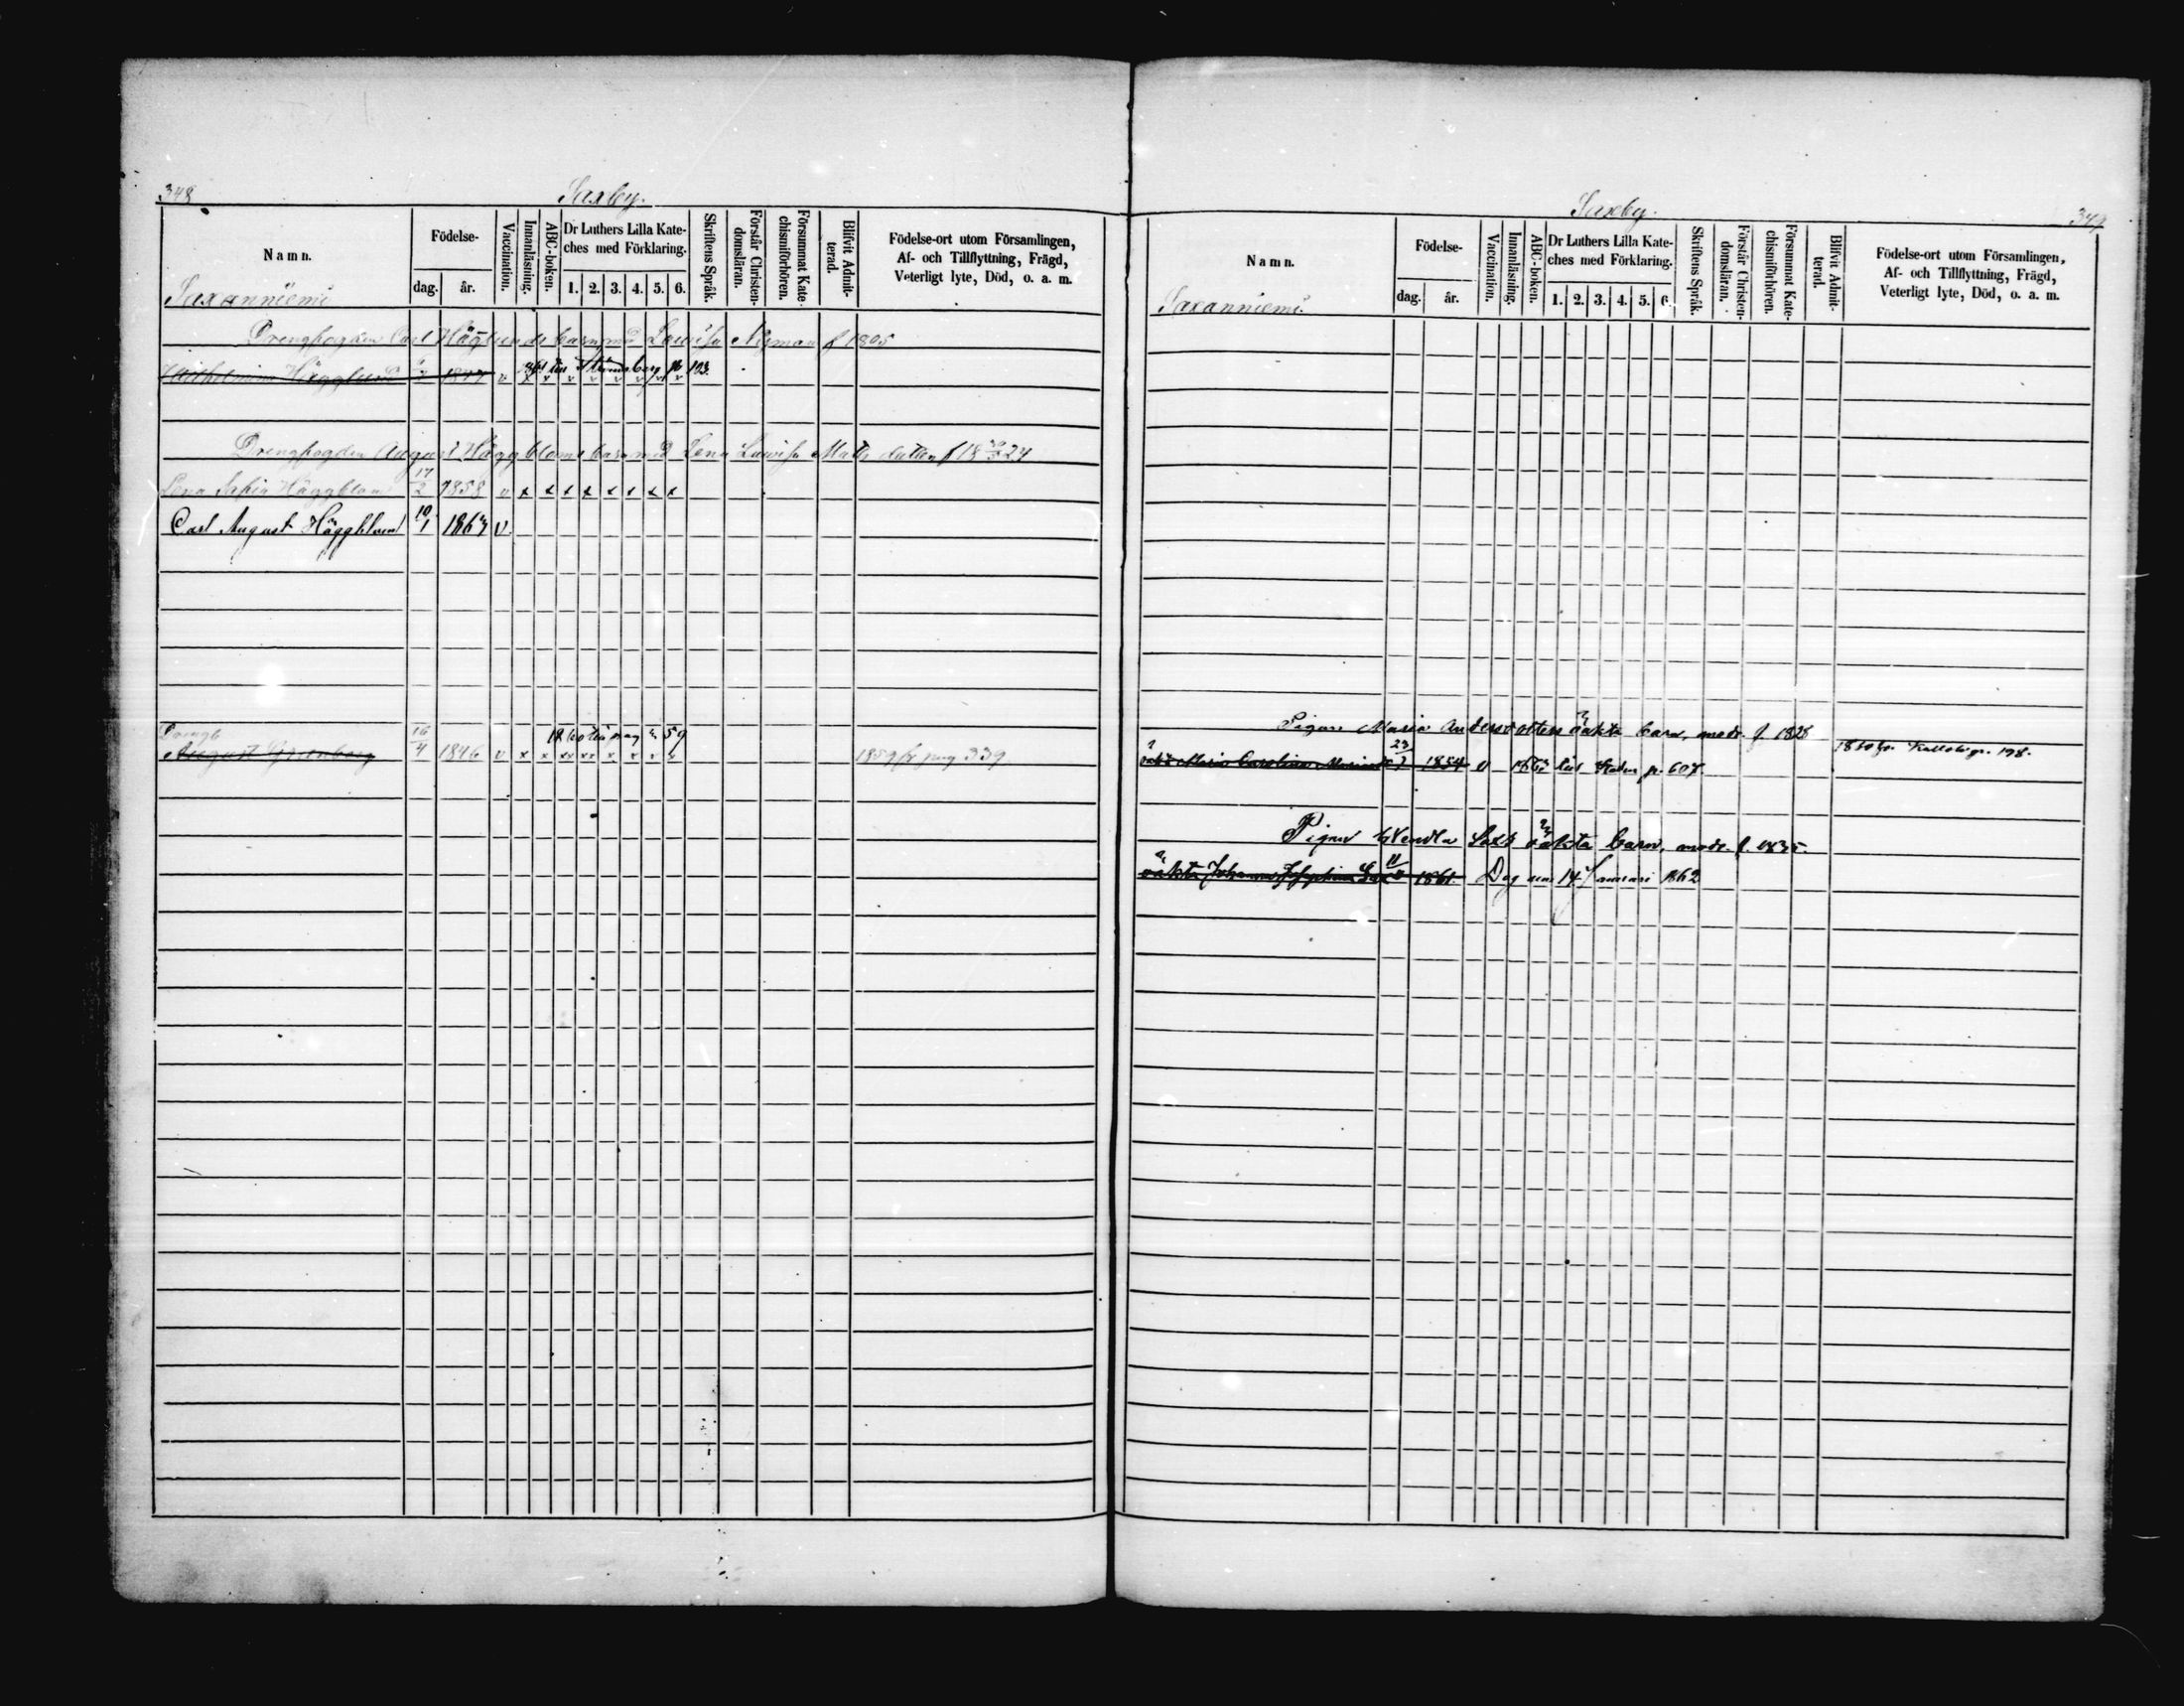 348
Saxby.
Namn.
Födelse-
dag. år.
Vaccination.
Innanläsning.
ABC-boken.
Dr Luthers Lilla Kate-
ches med Förklaring.
1. 2. 3. 4. 5. 6.
Skriftens Språk.
Förstår Christen-
domsläran.
Försummat Kate-
chismiförhören.
Blifvit Admit-
terad.
Födelse-ort utom Församlingen,
Af- och Tillflyttning, Frägd,
Veterligt lyte, Död, o. a. m.
Saxanniemi
Drengfogden Carl Häglunds barn med Lowisa Nyman f 1805
Wilhelmina Hägglund 1847 v 1861 till Strömsberg p 103.
Drengfogden August Häggbloms barn med Lena Lowisa Mats dotter f 18 24
Lena Sofia Häggblom 17/2 1858 v x x x x x x x x
Carl August Häggblom 10/1 1867 v.
Drengb 16/4 1846 v x x
August Grönberg
pag 59
1859 fr pag 339
349
Saxby.
Namn.
Födelse-
dag. år.
Vaccination.
Innanläsning.
ABC-boken.
Dr Luthers Lilla Kate-
ches med Förklaring.
1. 2. 3. 4. 5. 6.
Skriftens Språk.
Förstår Christen-
domsläran.
Försummat Kate-
chismiförhören.
Blifvit Admit-
terad.
Födelse-ort utom Församlingen,
Af- och Tillflyttning, Frägd,
Veterligt lyte, Död, o. a. m.
Saxanniemi.
Pigan Maria Andersdotters oäkta barn, modr. f. 1828
oäkta Maria Carolina 1854 v p. 607
p. 198.
Pigan Wendla Sax oäkta barn, modr. f. 1835.
oäkta Johanna Josephina Sax 1861. Dog den 14 Januari 1862